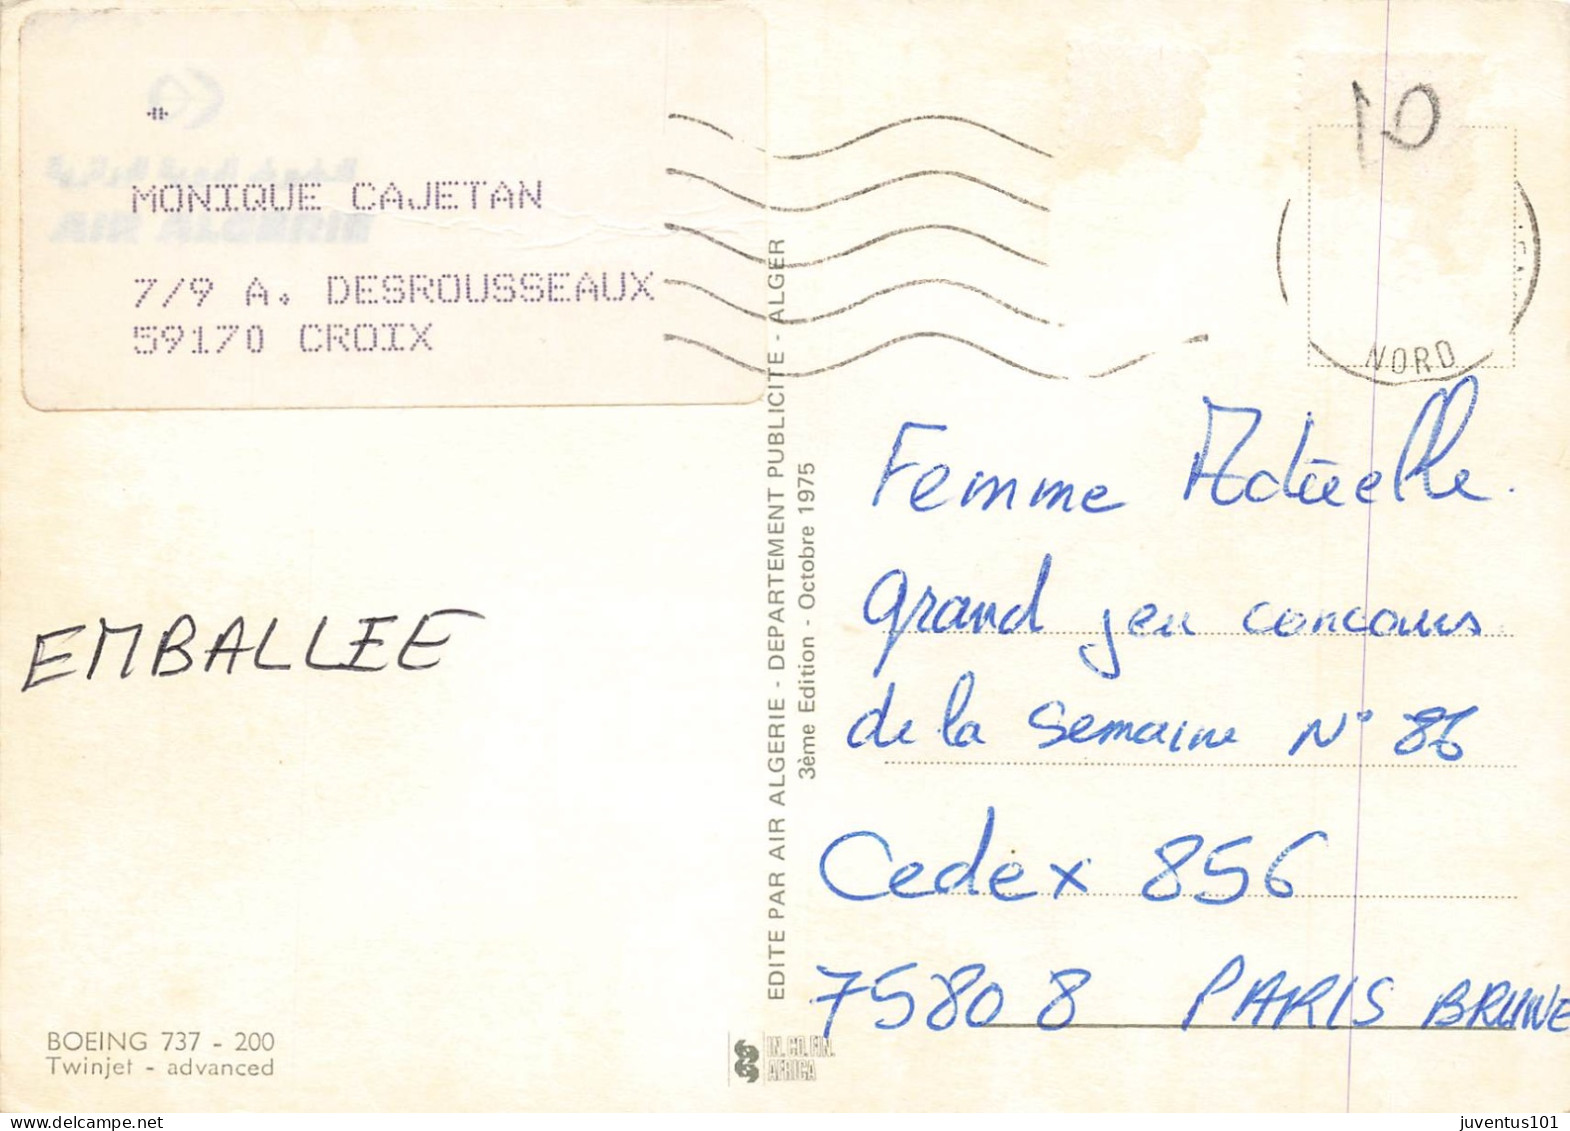 MONIQUE CAJETAN
7/9 A. DESROUSSEAUX
59170 CROIX
AIR ALGERIE
10
NORD
EMBALLEE
BOEING 737 - 200
Twinjet - advanced
EDITE PAR AIR ALGERIE - DEPARTEMENT PUBLICITE - ALGER
3ème Edition - Octobre 1975
IN. CO. FIN.
AFRICA
Femme Actuelle.
grand jeu concours
de la semaine N° 86
Cedex 856
75808 PARIS BRUNE
juventus101